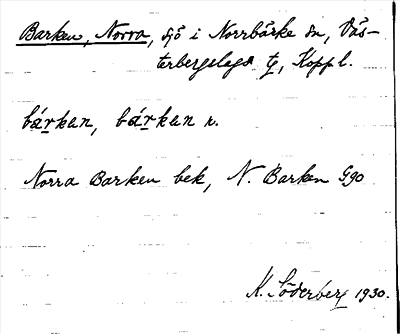 Barken, Norra, sjö i Norrbärke sn, Väs-
terbergslags tg, Koppl.
bárkan, bárkan n.
Norra Barken bek, N. Barken G90
K. Söderberg 1930.